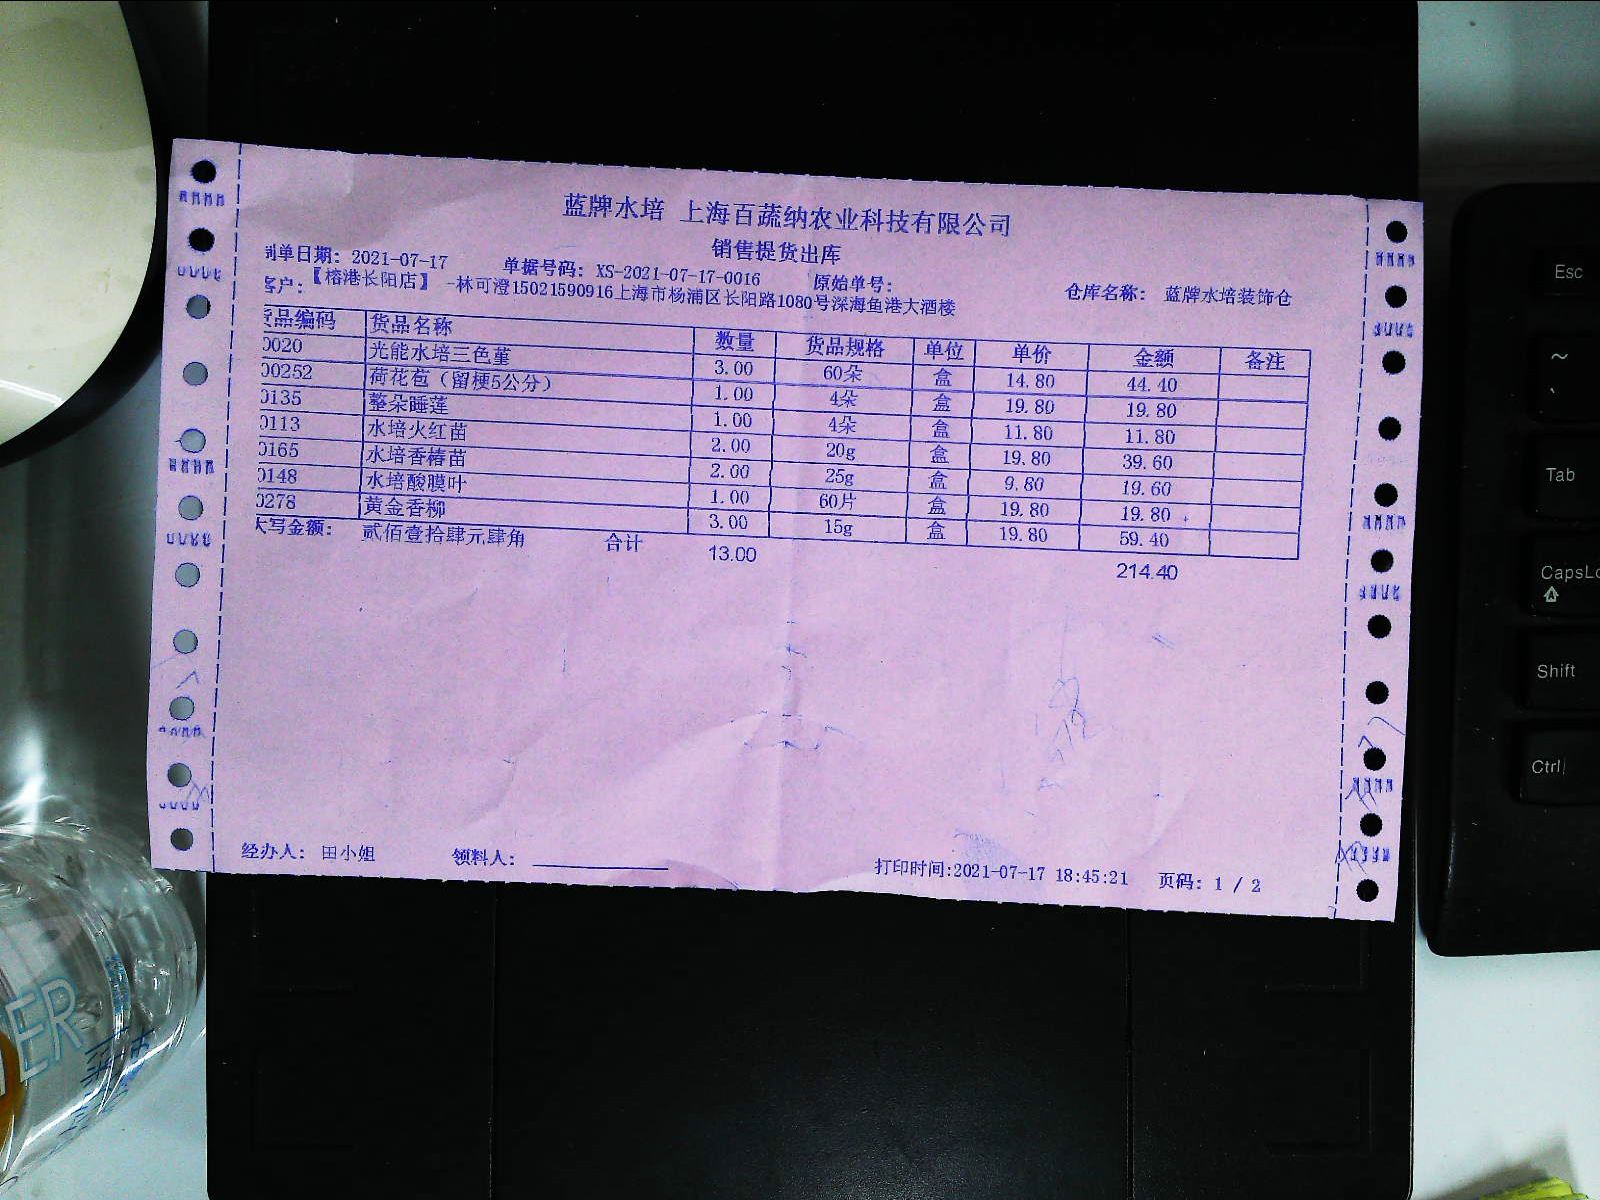 蓝牌水培 上海百蔬纳农业科技有限公司
销售提货出库
制单日期: 2021-07-17 单据号码: XS-2021-07-17-0016 原始单号: 仓库名称: 蓝牌水培装饰仓
客户: 【榕港长阳店】 -林可澄15021590916上海市杨浦区长阳路1080号深海鱼港大酒楼
货品编码 货品名称 数量 货品规格 单位 单价 金额 备注
0020 光能水培三色堇 3.00 60朵 盒 14.80 44.40
00252 荷花苞（留梗5公分） 1.00 4朵 盒 19.80 19.80
0135 整朵睡莲 1.00 4朵 盒 11.80 11.80
0113 水培火红苗 2.00 20g 盒 19.80 39.60
0165 水培香椿苗 2.00 25g 盒 9.80 19.60
0148 水培酸膜叶 1.00 60片 盒 19.80 19.80
0278 黄金香柳 3.00 15g 盒 19.80 59.40
大写金额: 贰佰壹拾肆元肆角 合计 13.00 214.40
经办人: 田小姐 领料人: 打印时间:2021-07-17 18:45:21 页码: 1 / 2
Esc
~
`
Tab
CapsLo
Shift
Ctrl
ER